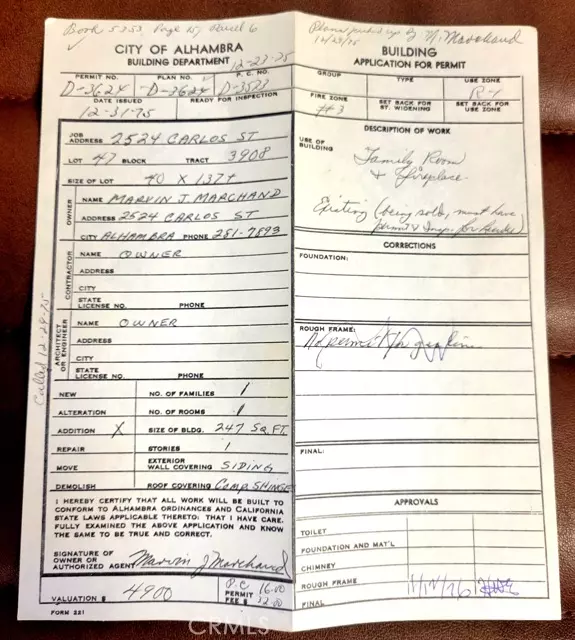 Book 5353, Page 15, Parcel 6
CITY OF ALHAMBRA
BUILDING DEPARTMENT
12-23-75
PERMIT NO.
PLAN NO.
P. C. NO.
D-3624
D-3624
D-3523
DATE ISSUED
READY FOR INSPECTION
12-31-75
JOB ADDRESS 2524 CARLOS ST
LOT 47 BLOCK TRACT 3908
SIZE OF LOT 40 X 137+
OWNER
NAME MARVIN J. MARCHAND
ADDRESS 2524 CARLOS ST
CITY ALHAMBRA PHONE 281-7893
CONTRACTOR
NAME OWNER
ADDRESS
CITY
STATE LICENSE NO. PHONE
Called 12-29-75
ARCHITECT OR ENGINEER
NAME OWNER
ADDRESS
CITY
STATE LICENSE NO. PHONE
NEW NO. OF FAMILIES 1
ALTERATION NO. OF ROOMS 1
ADDITION X SIZE OF BLDG. 247 SQ. FT.
REPAIR STORIES 1
MOVE EXTERIOR WALL COVERING SIDING
DEMOLISH ROOF COVERING COMP. SHINGLE
I HEREBY CERTIFY THAT ALL WORK WILL BE BUILT TO
CONFORM TO ALHAMBRA ORDINANCES AND CALIFORNIA
STATE LAWS APPLICABLE THERETO: THAT I HAVE CARE-
FULLY EXAMINED THE ABOVE APPLICATION AND KNOW
THE SAME TO BE TRUE AND CORRECT.
SIGNATURE OF
OWNER OR
AUTHORIZED AGENT Marvin J Marchand
VALUATION $ 4900
P.C. 16.00
PERMIT FEE $ 32.00
FORM 221
Plans picked up by M. Marchand
12/23/75
BUILDING
APPLICATION FOR PERMIT
GROUP
TYPE
USE ZONE
R-1
FIRE ZONE
#3
SET BACK FOR ST. WIDENING
SET BACK FOR USE ZONE
DESCRIPTION OF WORK
USE OF BUILDING
Family Room
& Fireplace
Existing (being sold, must have
permit & Insp. for
CORRECTIONS
FOUNDATION:
ROUGH FRAME:
No permit for gas line
FINAL:
APPROVALS
TOILET
FOUNDATION AND MAT'L
CHIMNEY
ROUGH FRAME
FINAL
CRMLS